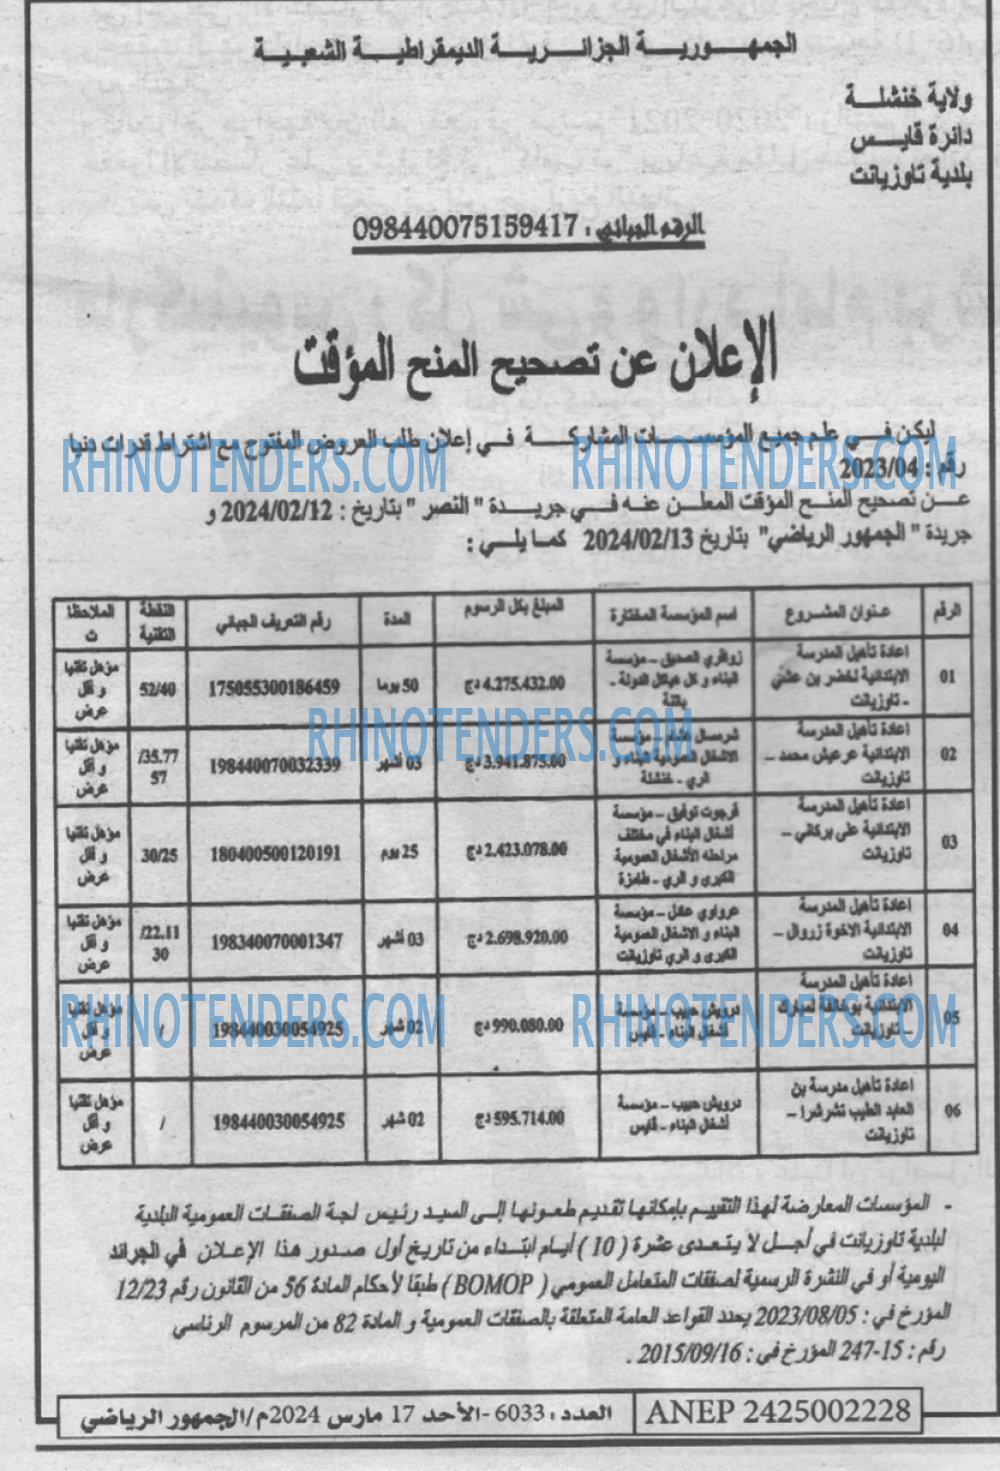 الجمهورية الجزائرية الديمقراطية الشعبية
ولاية خنشلة
دائرة قايس
بلدية تاوزيانت
الرقم الجبائي : 098440075159417
الإعلان عن تصحيح المنح المؤقت
ليكن في علم جميع المؤسسات المشاركة في إعلان طلب العروض المفتوح مع اشتراط قدرات دنيا
رقم : 2023/04
عن تصحيح المنح المؤقت المعلن عنه في جريدة " النصر " بتاريخ : 2024/02/12 و
جريدة " الجمهور الرياضي" بتاريخ 2024/02/13 كما يلي :
الرقم | عنوان المشروع | اسم المؤسسة المختارة | المبلغ بكل الرسوم | المدة | رقم التعريف الجبائي | النقطة التقنية | الملاحظات
01 | اعادة تأهيل المدرسة الابتدائية لخضر بن عشي - تاوزيانت | زواقري الصديق – مؤسسة البناء و كل هياكل الدولة - باتنة | 4.275.432.00 دج | 50 يوما | 175055300186459 | 52/40 | مؤهل تقنيا و أقل عرض
02 | اعادة تأهيل المدرسة الابتدائية عرعيش محمد – تاوزيانت | مؤسسة الاشغال العمومية البناء و الري - خنشلة | 3.941.875.00 دج | 03 أشهر | 198440070032339 | 35.77/57 | مؤهل تقنيا و أقل عرض
03 | اعادة تأهيل المدرسة الابتدائية علي بركاني – تاوزيانت | فرجوت توفيق – مؤسسة أشغال البناء في مختلف مراحله الأشغال العمومية الكبرى و الري - طامزة | 2.423.078.00 دج | 25 يوم | 180400500120191 | 30/25 | مؤهل تقنيا و أقل عرض
04 | اعادة تأهيل المدرسة الابتدائية الاخوة زروال – تاوزيانت | عرواوي عادل – مؤسسة البناء و الاشغال العمومية الكبرى و الري تاوزيانت | 2.698.920.00 دج | 03 أشهر | 198340070001347 | 22.11/30 | مؤهل تقنيا و أقل عرض
05 | اعادة تأهيل المدرسة الابتدائية بوخالفة لمبارك – تاوزيانت | درويش حبيب – مؤسسة أشغال البناء - قايس | 990.080.00 دج | 02 شهر | 198440030054925 | / | مؤهل تقنيا و أقل عرض
06 | اعادة تأهيل مدرسة بن العابد الطيب تشرشرا – تاوزيانت | درويش حبيب – مؤسسة أشغال البناء - قايس | 595.714.00 دج | 02 شهر | 198440030054925 | / | مؤهل تقنيا و أقل عرض
- المؤسسات المعارضة لهذا التقييم بإمكانها تقديم طعونها إلى السيد رئيس لجة الصفقات العمومية البلدية
لبلدية تاوزيانت في أجل لا يتعدى عشرة ( 10 ) أيام ابتداء من تاريخ أول صدور هذا الإعلان في الجرائد
اليومية أو في النشرة الرسمية لصفقات المتعامل العمومي ( BOMOP ) طبقا لأحكام المادة 56 من القانون رقم 12/23
المؤرخ في : 2023/08/05 يحدد القواعد العامة المتعلقة بالصفقات العمومية و المادة 82 من المرسوم الرئاسي
رقم : 15-247 المؤرخ في : 2015/09/16 .
ANEP 2425002228
العدد : 6033 -الأحد 17 مارس 2024م/الجمهور الرياضي
RHINOTENDERS.COM
RHINOTENDERS.COM
RHINOTENDERS.COM
RHINOTENDERS.COM
RHINOTENDERS.COM